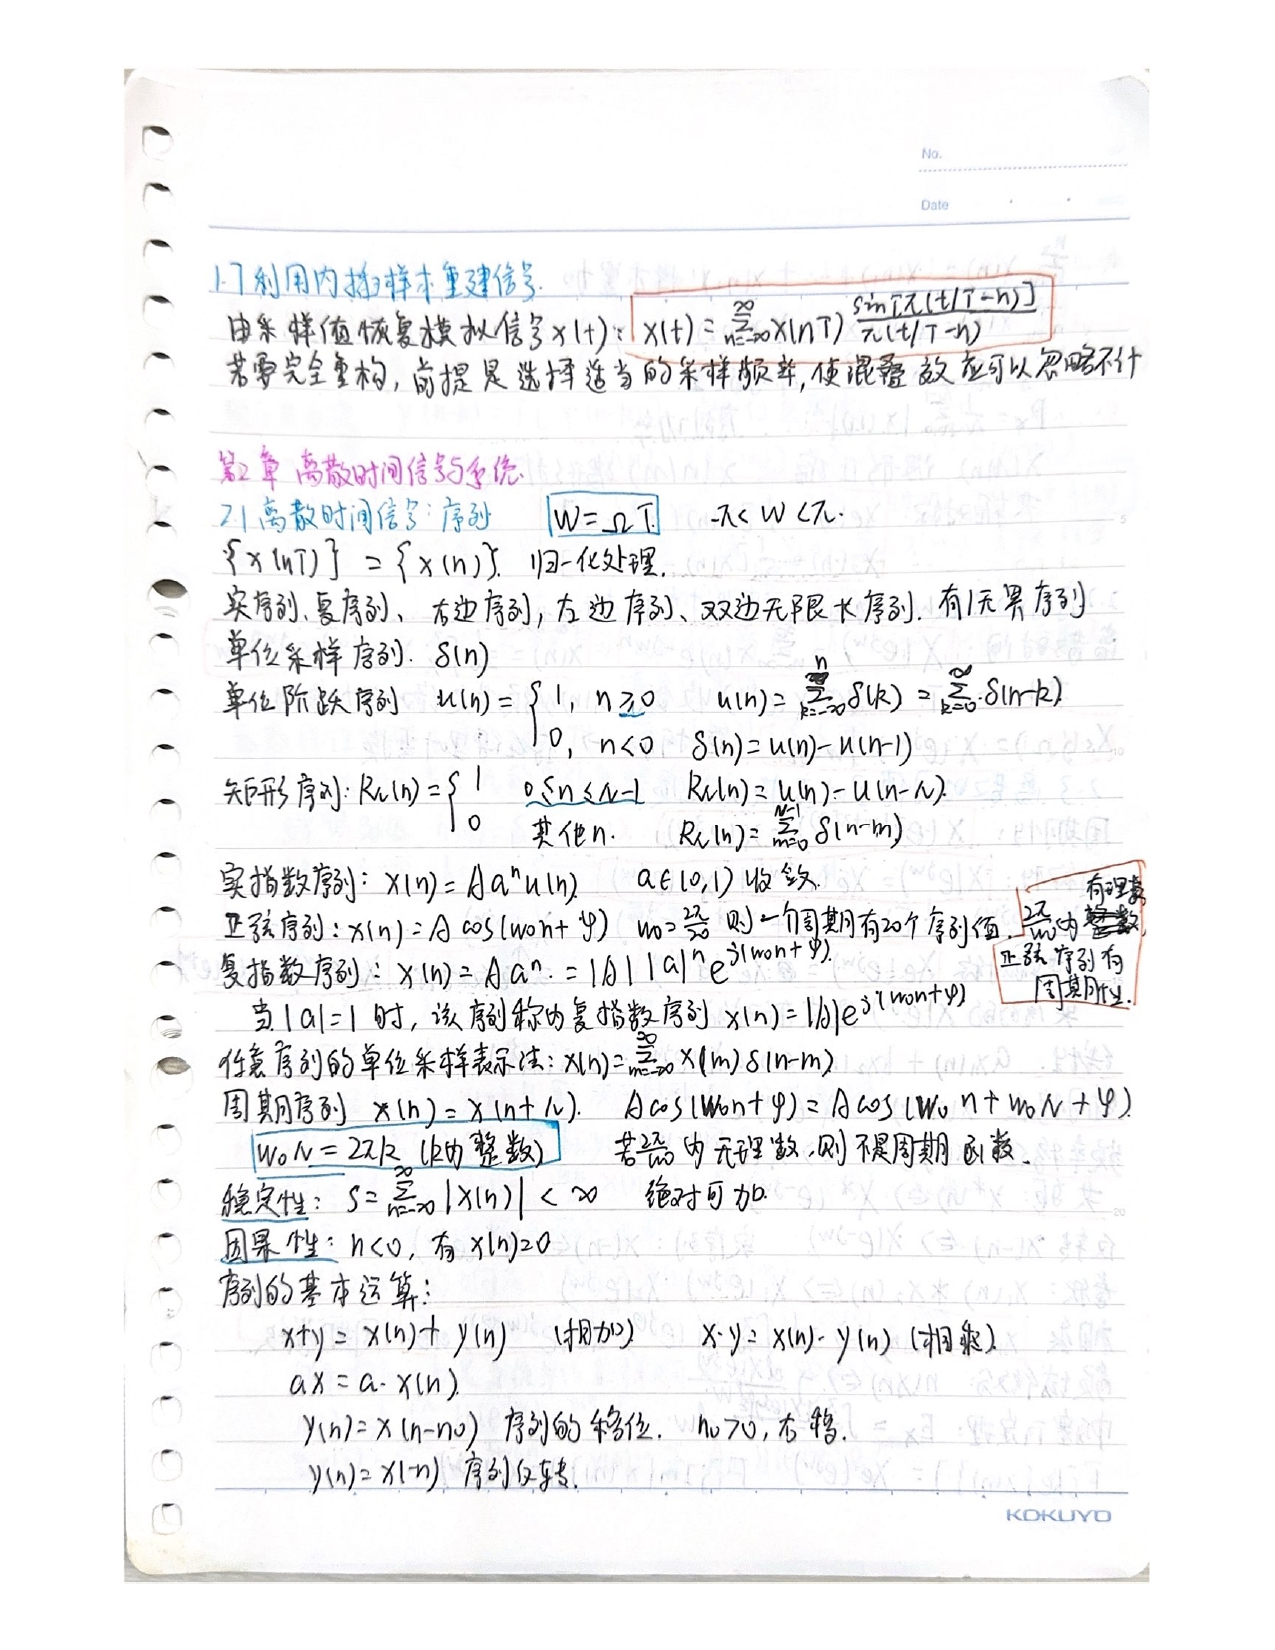 No.
Date
1.7 利用内插样本重建信号.
由采样值恢复模拟信号x(t): x(t) = ∑_{n=-∞}^{∞} x(nT) sin[π(t/T-n)] / π(t/T-n)
若要完全重构, 前提是选择适当的采样频率, 使混叠效应可以忽略不计
第2章 离散时间信号与系统.
2.1 离散时间信号: 序列 W = ΩT. -π < W < π.
{x(nT)} = {x(n)}. 归一化处理.
实序列、复序列、右边序列, 左边序列、双边无限长序列. 有/无界序列
单位采样序列. δ(n)
单位阶跃序列 u(n) = { 1, n ≥ 0 u(n) = ∑_{k=-∞}^{n} δ(k) = ∑_{k=0}^{∞} δ(n-k).
0, n < 0 δ(n) = u(n) - u(n-1)
矩形序列: R_N(n) = { 1 0 ≤ n ≤ N-1 R_N(n) = u(n) - u(n-N).
0 其他n. R_N(n) = ∑_{m=0}^{N-1} δ(n-m)
实指数序列: x(n) = A aⁿ u(n). a∈(0,1) 收敛.
正弦序列: x(n) = A cos(w₀n + φ) w₀ = 2π/20 则一个周期有20个序列值. 2π/w₀ 为有理数
正弦序列有
周期性.
复指数序列: x(n) = A aⁿ. = |A| |a|ⁿ e^{j(w₀n + φ)}.
当 |a| = 1 时, 该序列称为复指数序列 x(n) = |A| e^{j(w₀n+φ)}
任意序列的单位采样表示法: x(n) = ∑_{m=-∞}^{∞} x(m) δ(n-m)
周期序列 x(n) = x(n+N). A cos(w₀n + φ) = A cos(w₀n + w₀N + φ).
w₀N = 2πk (k为整数) 若 2π/w₀ 为无理数, 则不是周期函数.
稳定性: S = ∑_{n=-∞}^{∞} |x(n)| < ∞ 绝对可加.
因果性: n<0, 有 x(n)=0
序列的基本运算:
x+y = x(n) + y(n) (相加) x·y = x(n)·y(n) (相乘).
ax = a·x(n).
y(n) = x(n-n₀) 序列的移位. n₀>0, 右移.
y(n) = x(-n) 序列反转.
KOKUYO